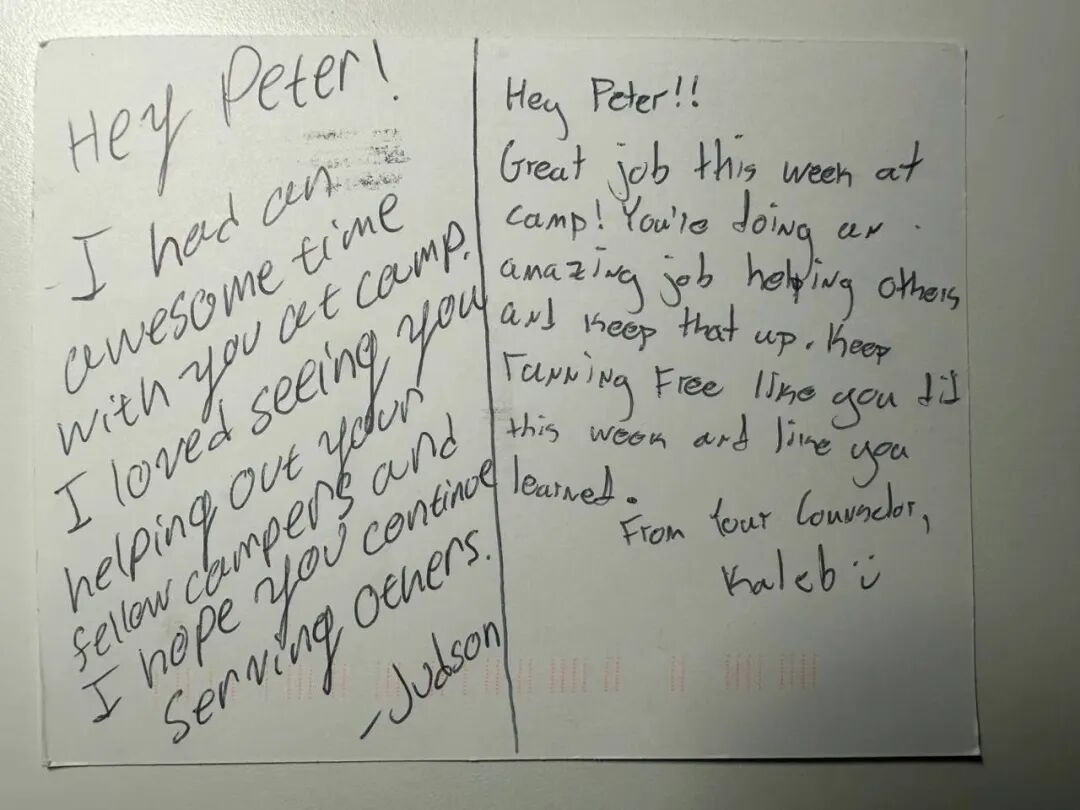 Hey Peter!
I had an
awesome time
with you at camp.
I loved seeing you
helping out your
fellow campers and
I hope you continue
serving others.
-Judson
Hey Peter!!
Great job this week at
camp! You're doing an
amazing job helping others
and keep that up. Keep
running free like you did
this week and like you
learned.
From Your Counselor,
Kaleb :)